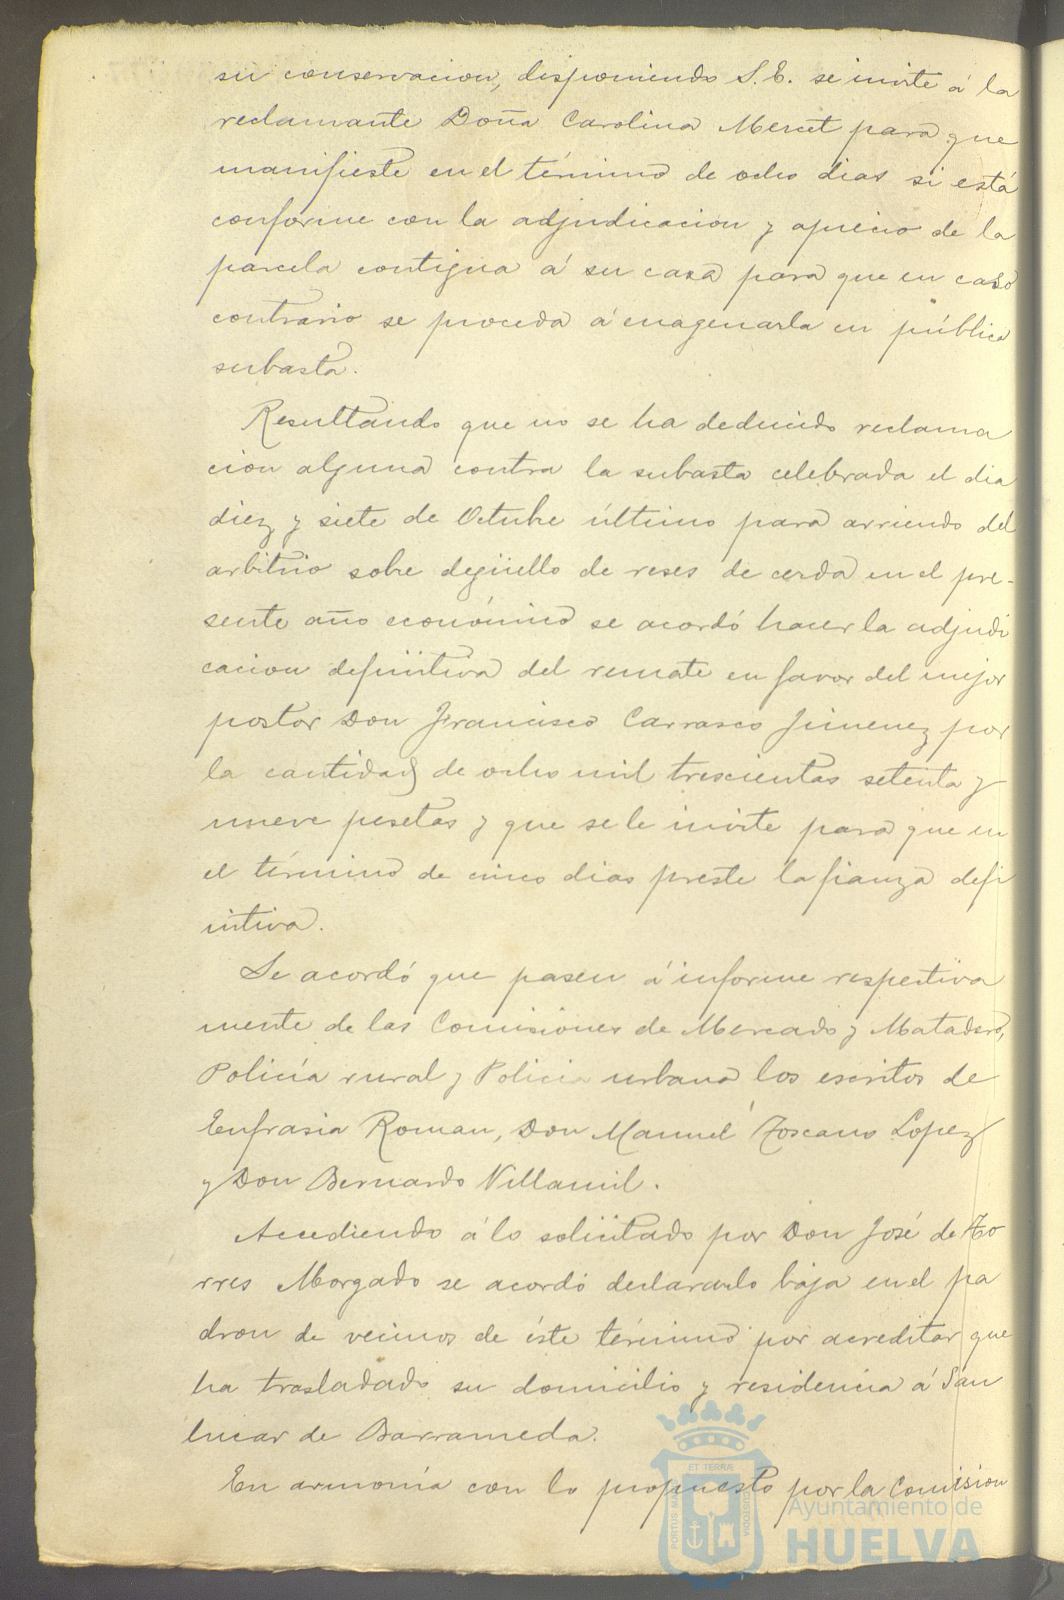 su conservacion, disponiendo S.E. se invite á la
reclamante Doña Carolina Mercet para que
manifieste en el término de ocho dias si está
conforme con la adjudicacion y aprecio de la
parcela contigua á su casa para que en caso
contrario se proceda á enagenarla en pública
subasta.
Resultando que no se ha deducido reclama
cion alguna contra la subasta celebrada el dia
diez y siete de Octubre último para arriendo del
arbitrio sobre degüello de reses de cerda en el pre-
sente año económico se acordó hacer la adjudi
cacion definitiva del remate en favor del mejor
postor Don Francisco Carrasco Jimenez por
la cantidad de ocho mil trescientas setenta y
nueve pesetas y que se le invite para que en
el término de cinco dias preste la fianza defi
nitiva.
Se acordó que pasen á informe respectiva
mente de las Comisiones de Mercado y Matadero,
Policía rural y Policia urbana los escritos de
Eufrasia Roman, Don Manuel Toscano Lopez
y Don Bernardo Villamil.
Accediendo á lo solicitado por Don José de To
rres Morgado se acordó declararlo baja en el pa
dron de vecinos de éste término por acreditar que
ha trasladado su domicilio y residencia á San
lucar de Barrameda.
En armonía con lo propuesto por la Comision
PORTUS MARIS ET TERRÆ CUSTODIA
Ayuntamiento de
HUELVA